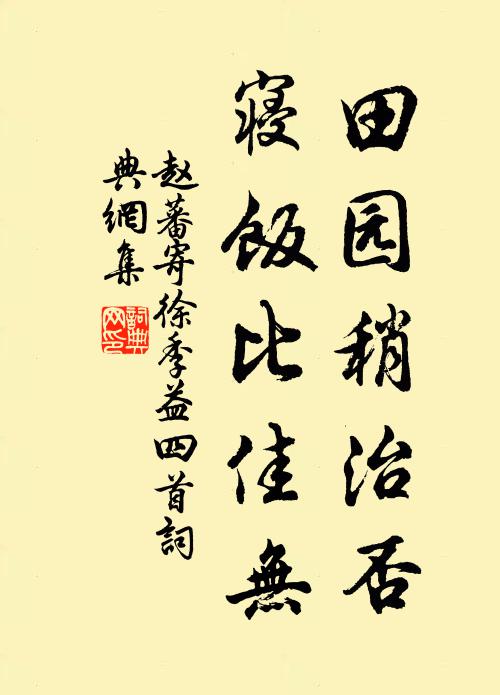 田园稍治否
寝飯比佳無
赵蕃寄徐季益四首詞
典網集
詞典
网印